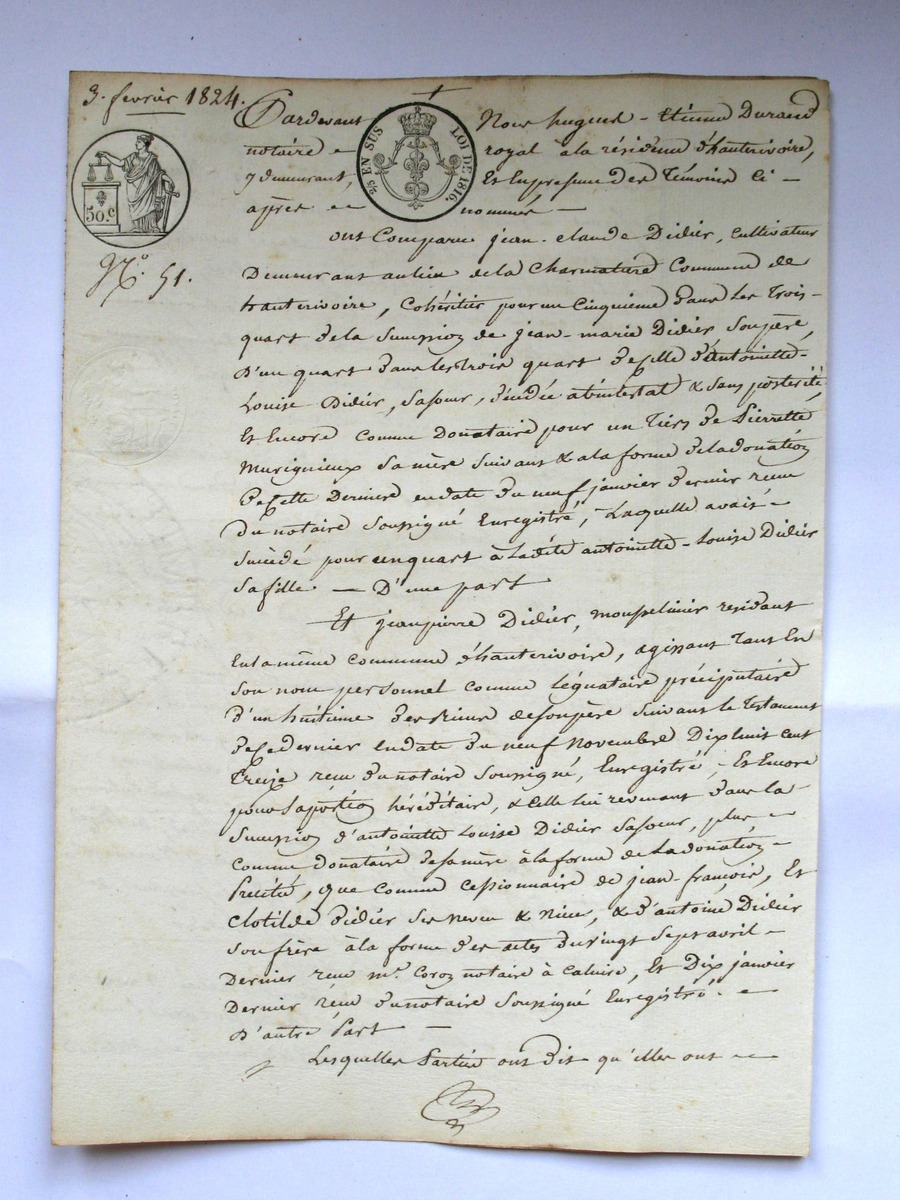 3. fevrier 1824.
Pardevant Nous hugues - Etienne Durand
notaire royal à la résidence d'hauterivoire,
y demeurant, Et En presence des Témoins Ci -
après nommés -
25 EN SUS LOI DE 1816.
50.c
N.o 51.
ont Comparu jean-claude Didier, Cultivateur
Demeurant au lieu de la Charmature Commune de
hauterivoire, Cohéritier pour un Cinquième dans Les Trois-
quart de la Succession de jean-marie Didier Son père,
D'un quart dans les trois quart de Celle d'Antoinette-
Louise Didier, Sa soeur, décédée abintestat & Sans postérité
Et Encore Comme Donataire pour un Tiers de Pierrette
Murigneux Sa mère Suivant & a la forme de la donation
de Cette Dernière en date du neuf janvier dernier reçue
du notaire Soussigné Enregistré, - Laquelle avait -
Succédé pour un quart à Ladite antoinette-Louise Didier
Sa fille. — D'une part
Et jean pierre Didier, mousselinier residant
En la même commune d'hauterivoire, agissant Tant En
Son nom personnel Comme légataire précipuaire
d'un huitième des biens de Son père Suivant le Testament
de Ce dernier en date du neuf Novembre Dix huit cent
Treize reçu du notaire Soussigné, Enregistré, - Et Encore
pour Sa portion héréditaire, & Celle lui revenant dans la
Succession d'antoinette Louise Didier Sa soeur, plus
Comme donataire de Sa mère à la forme de La donation -
Précitée, que comme Cessionnaire de jean-françois, Et
Clotilde Didier Ses neveu & Nièce, & d'antoine Didier
Son frère à la forme des actes du vingt Sept avril -
Dernier reçu m.e notaire à Caluire, Et Dix janvier
Dernier reçu du notaire Soussigné Enregistré. -
D'autre Part —
Lesquelles Parties ont Dit qu'elles ont